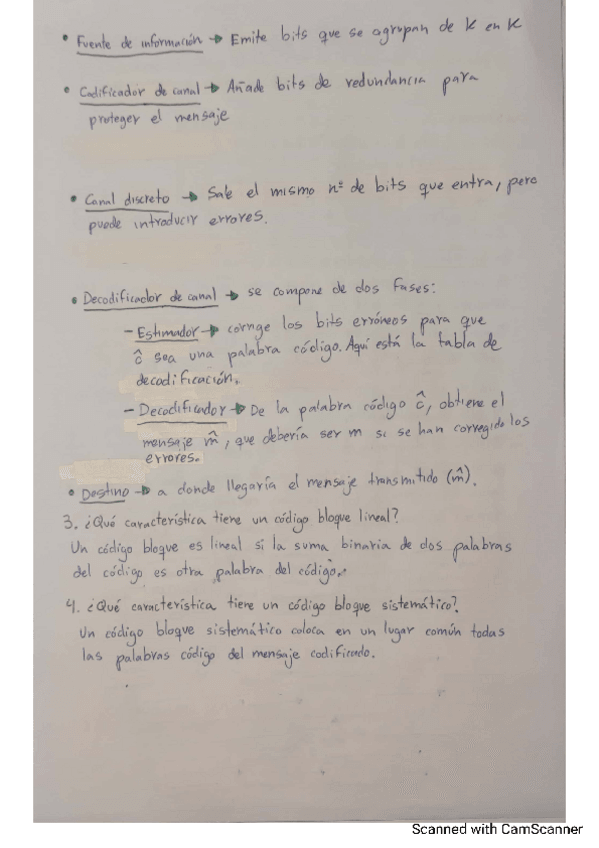 • Fuente de información → Emite bits que se agrupan de K en K
• Codificador de canal → Añade bits de redundancia para
proteger el mensaje
• Canal discreto → Sale el mismo nº de bits que entra, pero
puede introducir errores.
• Decodificador de canal → se compone de dos fases:
- Estimador → corrige los bits erróneos para que
ĉ sea una palabra código. Aquí está la tabla de
decodificación.
- Decodificador → De la palabra código ĉ, obtiene el
mensaje m̂, que debería ser m si se han corregido los
errores.
• Destino → a donde llegaría el mensaje transmitido (m̂).
3. ¿Qué característica tiene un código bloque lineal?
Un código bloque es lineal si la suma binaria de dos palabras
del código es otra palabra del código.
4. ¿Qué característica tiene un código bloque sistemático?
Un código bloque sistemático coloca en un lugar común todas
las palabras código del mensaje codificado.
Scanned with CamScanner